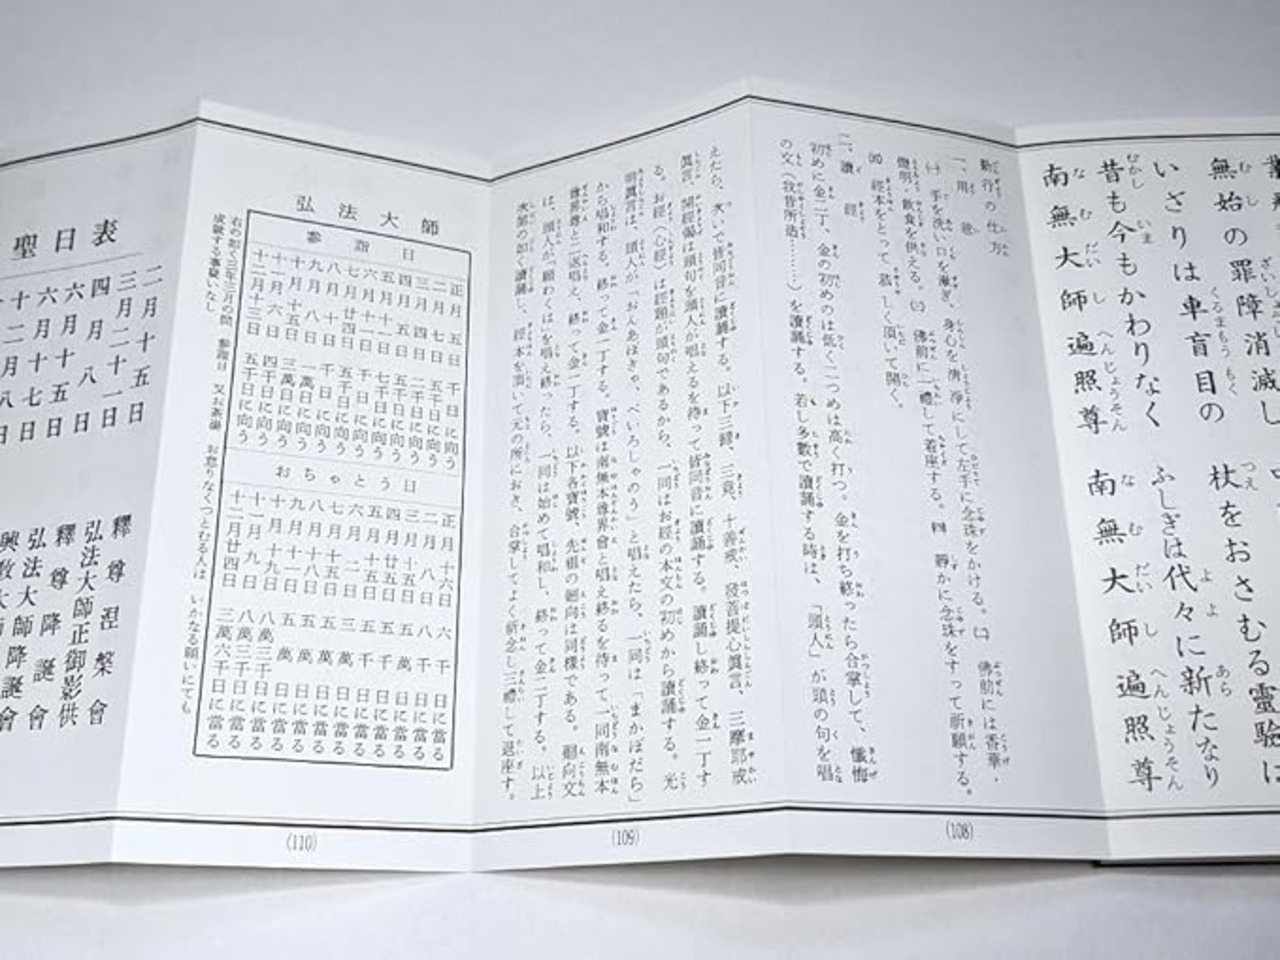 無始の罪障消滅し
いざりは車盲目の
昔も今もかわりなく
南無大師遍照尊
杖をおさむる靈驗は
ふしぎは代々に新たなり
南無大師遍照尊
勤行の仕方
一、用意
㈠ 手を洗い口を漱ぎ、身心を清淨にして左手に念珠をかける。㈡ 佛前には香華・
燈明、飲食を供える。㈢ 佛前に一禮して着座する。㈣ 靜かに念珠をすって祈願する。
㈤ 經本をとって恭しく頂いて開く。
二、讀經
初めに金二丁、金の初めのは低く二つめは高く打つ。金を打ち終ったら合掌して、懺悔
の文(我昔所造……)を讀誦する。若し多數で讀誦する時は、「頭人」が頭の句を唱
(108)
えたら、次いで皆同音に讀誦する。以下三歸、三竟、十善戒、發菩提心眞言、三摩耶戒
眞言、開經偈は頭句を頭人が唱えるを待って皆同音に讀誦する。讀誦し終って金一丁す
る。お經(心經)は經題が頭句であるから、一同はお經の本文の初めから讀誦する。光
明眞言は、頭人が「おんあぼきゃ、べいろしゃのう」と唱えたら、一同は「まかぼだら」
から唱和する。終って金一丁する。寶號は南無本尊界會と唱え終るを待って、一同南無本
尊界會と二反唱え、終って金一丁する。以下各寶號、先祖の廻向は同樣である。廻向文
は、頭人が「願わくは」を唱え終ったら、一同は始めて唱和し、終って金二丁する。以上
次第の如く讀誦し、經本を頂いて元の所におき、合掌してよく祈念し三禮して退座す。
(109)
弘法大師
參詣日
正月五日 千日に向う
二月七日 五千日に向う
三月四日 二千日に向う
四月五日 千日に向う
五月十日 七千日に向う
六月十一日 五千日に向う
七月廿四日 五千日に向う
八月十日 千日に向う
九月八日 一萬日に向う
十月十五日 三萬日に向う
十一月六日 四千日に向う
十二月十三日 五千日に向う
おちゃとう日
正月十六日 六千日に當る
二月八日 八千日に當る
三月十五日 五千日に當る
四月廿五日 五萬日に當る
五月十五日 五千日に當る
六月二日 三萬日に當る
七月十五日 五萬日に當る
八月十八日 五萬日に當る
九月十一日 五萬日に當る
十月十九日 八萬三千日に當る
十一月九日 八萬三千日に當る
十二月廿四日 三萬六千日に當る
右の如く三年三月の間 參詣日 又お茶湯 お怠りなくつとむる人は いかなる願いにても
成就する事疑いなし
(110)
聖日表
二月十五日 釋尊涅槃會
三月二十一日 弘法大師正御影供
四月八日 釋尊降誕會
六月十五日 弘法大師降誕會